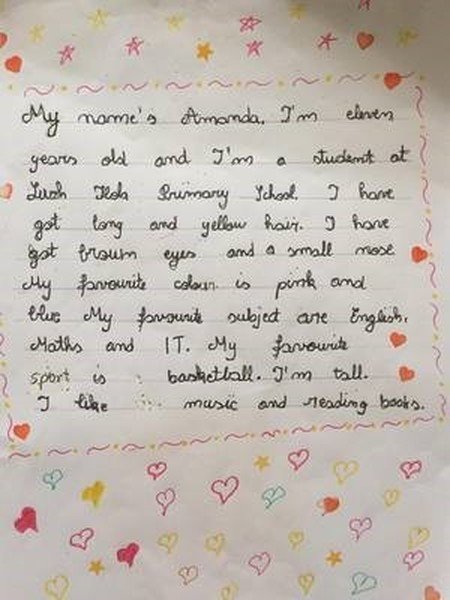 My name's Amanda. I'm eleven
years old and I'm a student at
Primary School. I have
got long and yellow hair. I have
got brown eyes and a small nose
My favourite colour is pink and
blue My favourite subject are English,
Maths and IT. My favourite
sport is basketball. I'm tall.
I like music and reading books.